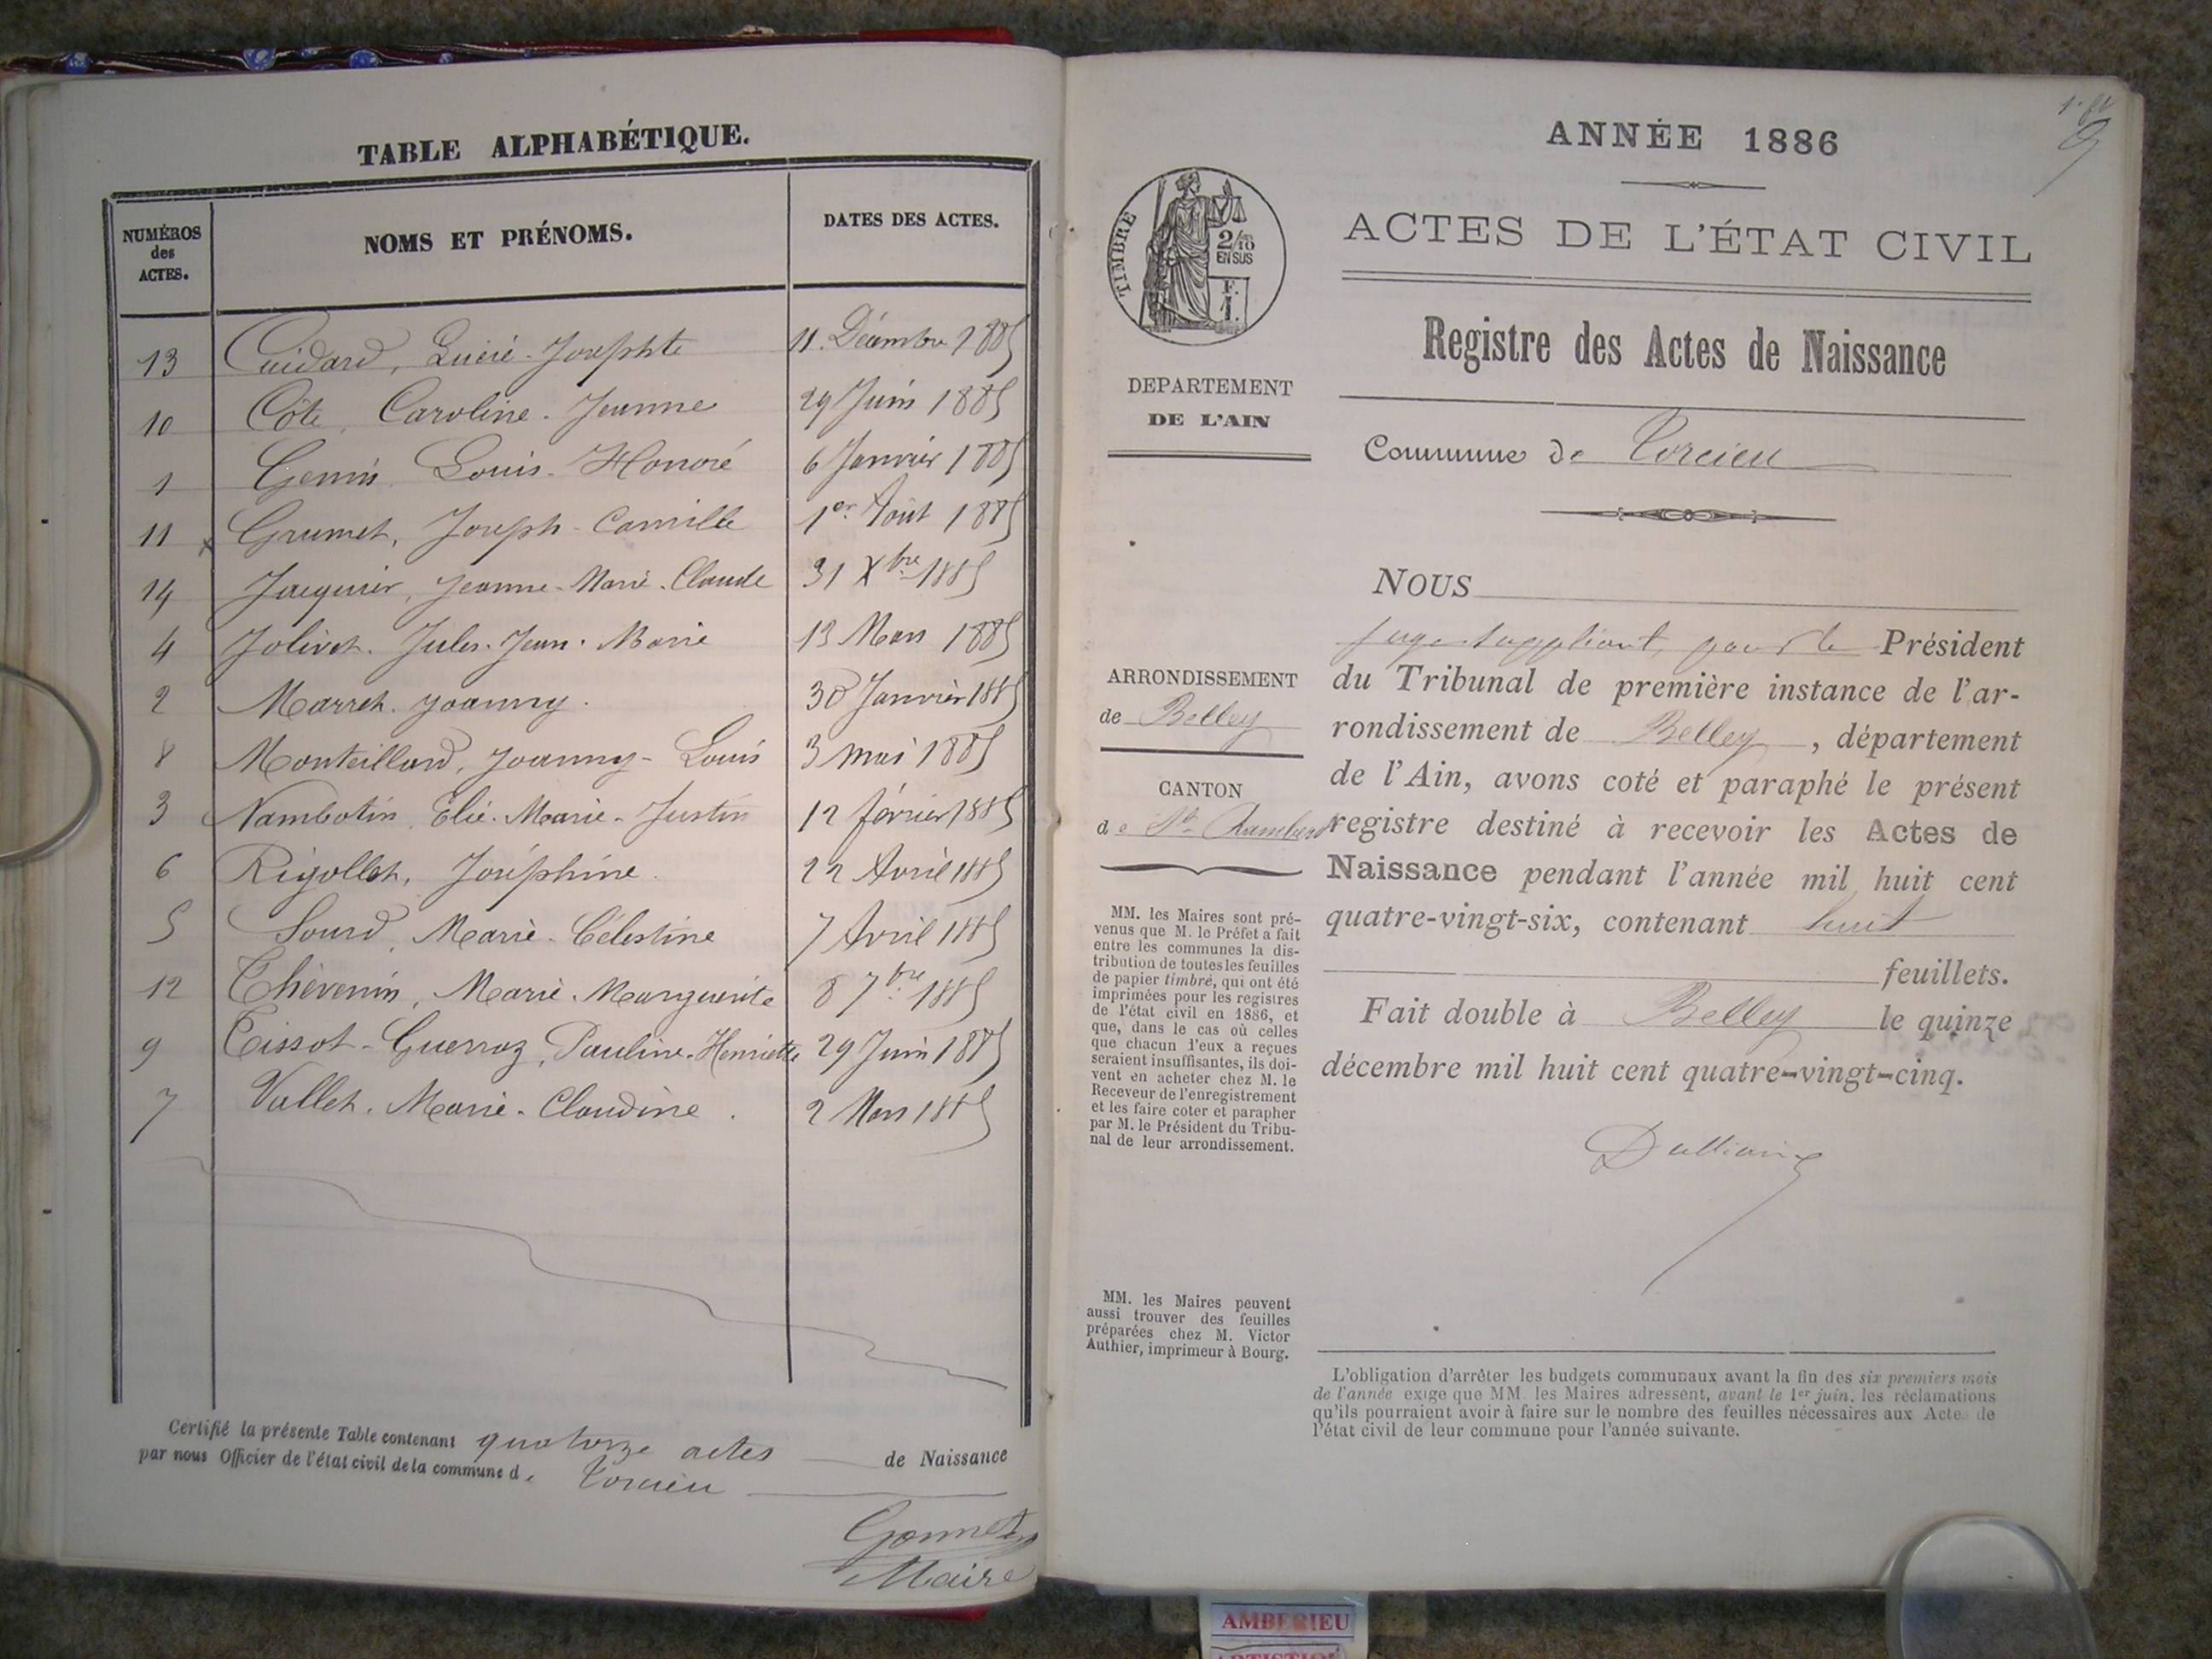 TABLE ALPHABÉTIQUE.
NUMÉROS des ACTES. NOMS ET PRÉNOMS. DATES DES ACTES.
13 Cuidard, Lucie-Josephte 11 Décembre 1885
10 Côte, Caroline-Jeanne 29 Juin 1885
1 Genin Louis-Honoré 6 Janvier 1885
11 Grumet, Joseph-Camille 1er Août 1885
14 Jacquier, Jeanne-Marie-Claude 31 Xbre 1885
4 Jolivet. Jules-Jean-Marie 13 Mars 1885
2 Marret. Joanny. 30 Janvier 1885
8 Monteillard, Joanny-Louis 3 mai 1885
3 Nambotin, Elie-Marie-Justin 12 février 1885
6 Rigollet, Joséphine. 22 Avril 1885
5 Sourd, Marie-Célestine 7 Avril 1885
12 Thévenin, Marie-Marguerite 8 7bre 1885
9 Tissot-Guerraz, Pauline-Henriette 29 Juin 1885
7 Vallet. Marie-Claudine. 2 Mars 1885
Certifié la présente Table contenant quatorze actes de Naissance
par nous Officier de l'état civil de la commune de Torcieu
Gonnet
Maire
ANNÉE 1886
ACTES DE L'ÉTAT CIVIL
Registre des Actes de Naissance
Commune de Torcieu
TIMBRE
2/10
EN SUS
F.
1.
DEPARTEMENT
DE L'AIN
ARRONDISSEMENT
de Belley
CANTON
de St Rambert
MM. les Maires sont pré-
venus que M. le Préfet a fait
entre les communes la dis-
tribution de toutes les feuilles
de papier timbré, qui ont été
imprimées pour les registres
de l'état civil en 1886, et
que, dans le cas où celles
que chacun d'eux a reçues
seraient insuffisantes, ils doi-
vent en acheter chez M. le
Receveur de l'enregistrement
et les faire coter et parapher
par M. le Président du Tribu-
nal de leur arrondissement.
MM. les Maires peuvent
aussi trouver des feuilles
préparées chez M. Victor
Authier, imprimeur à Bourg.
NOUS
juge suppléant, pour le Président
du Tribunal de première instance de l'ar-
rondissement de Belley, département
de l'Ain, avons coté et paraphé le présent
registre destiné à recevoir les Actes de
Naissance pendant l'année mil huit cent
quatre-vingt-six, contenant huit
feuillets.
Fait double à Belley le quinze
décembre mil huit cent quatre-vingt-cinq.
L'obligation d'arrêter les budgets communaux avant la fin des six premiers mois
de l'année exige que MM. les Maires adressent, avant le 1er juin, les réclamations
qu'ils pourraient avoir à faire sur le nombre des feuilles nécessaires aux Actes de
l'état civil de leur commune pour l'année suivante.
AMBERIEU